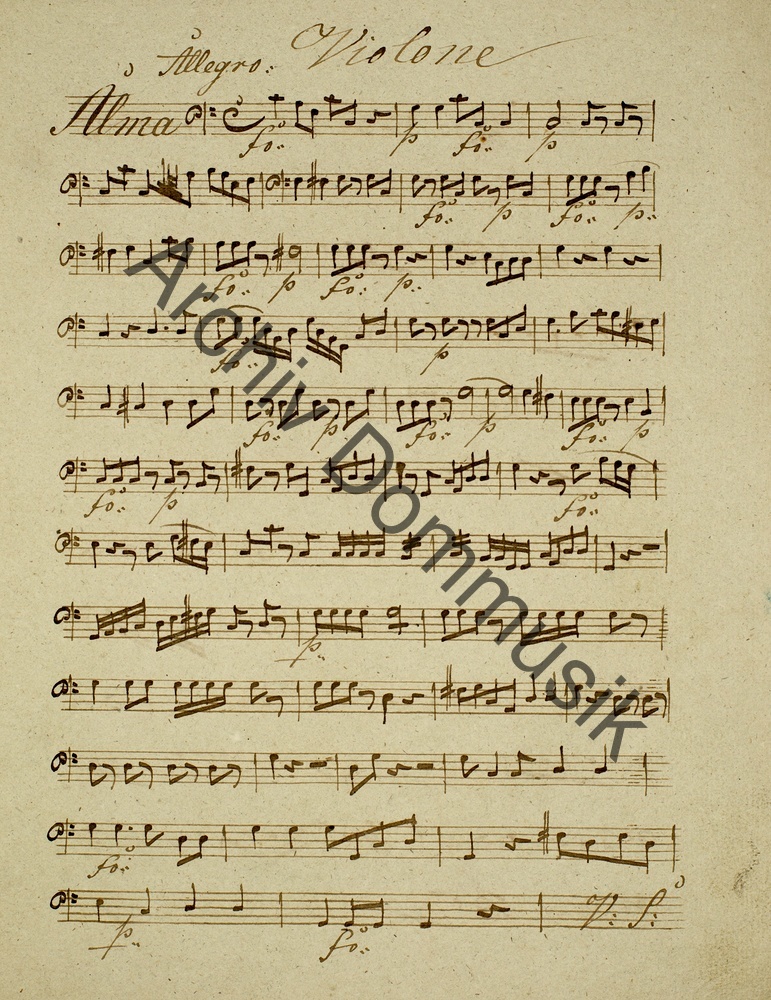 Allegro: Violone
Alma
fo: p fo: p
fo: p fo: p:
fo: p fo: p:
fo: p
fo: p fo: p fo: p
fo: p fo:
p:
fo:
p: fo: V: S:
Archiv Dommusik